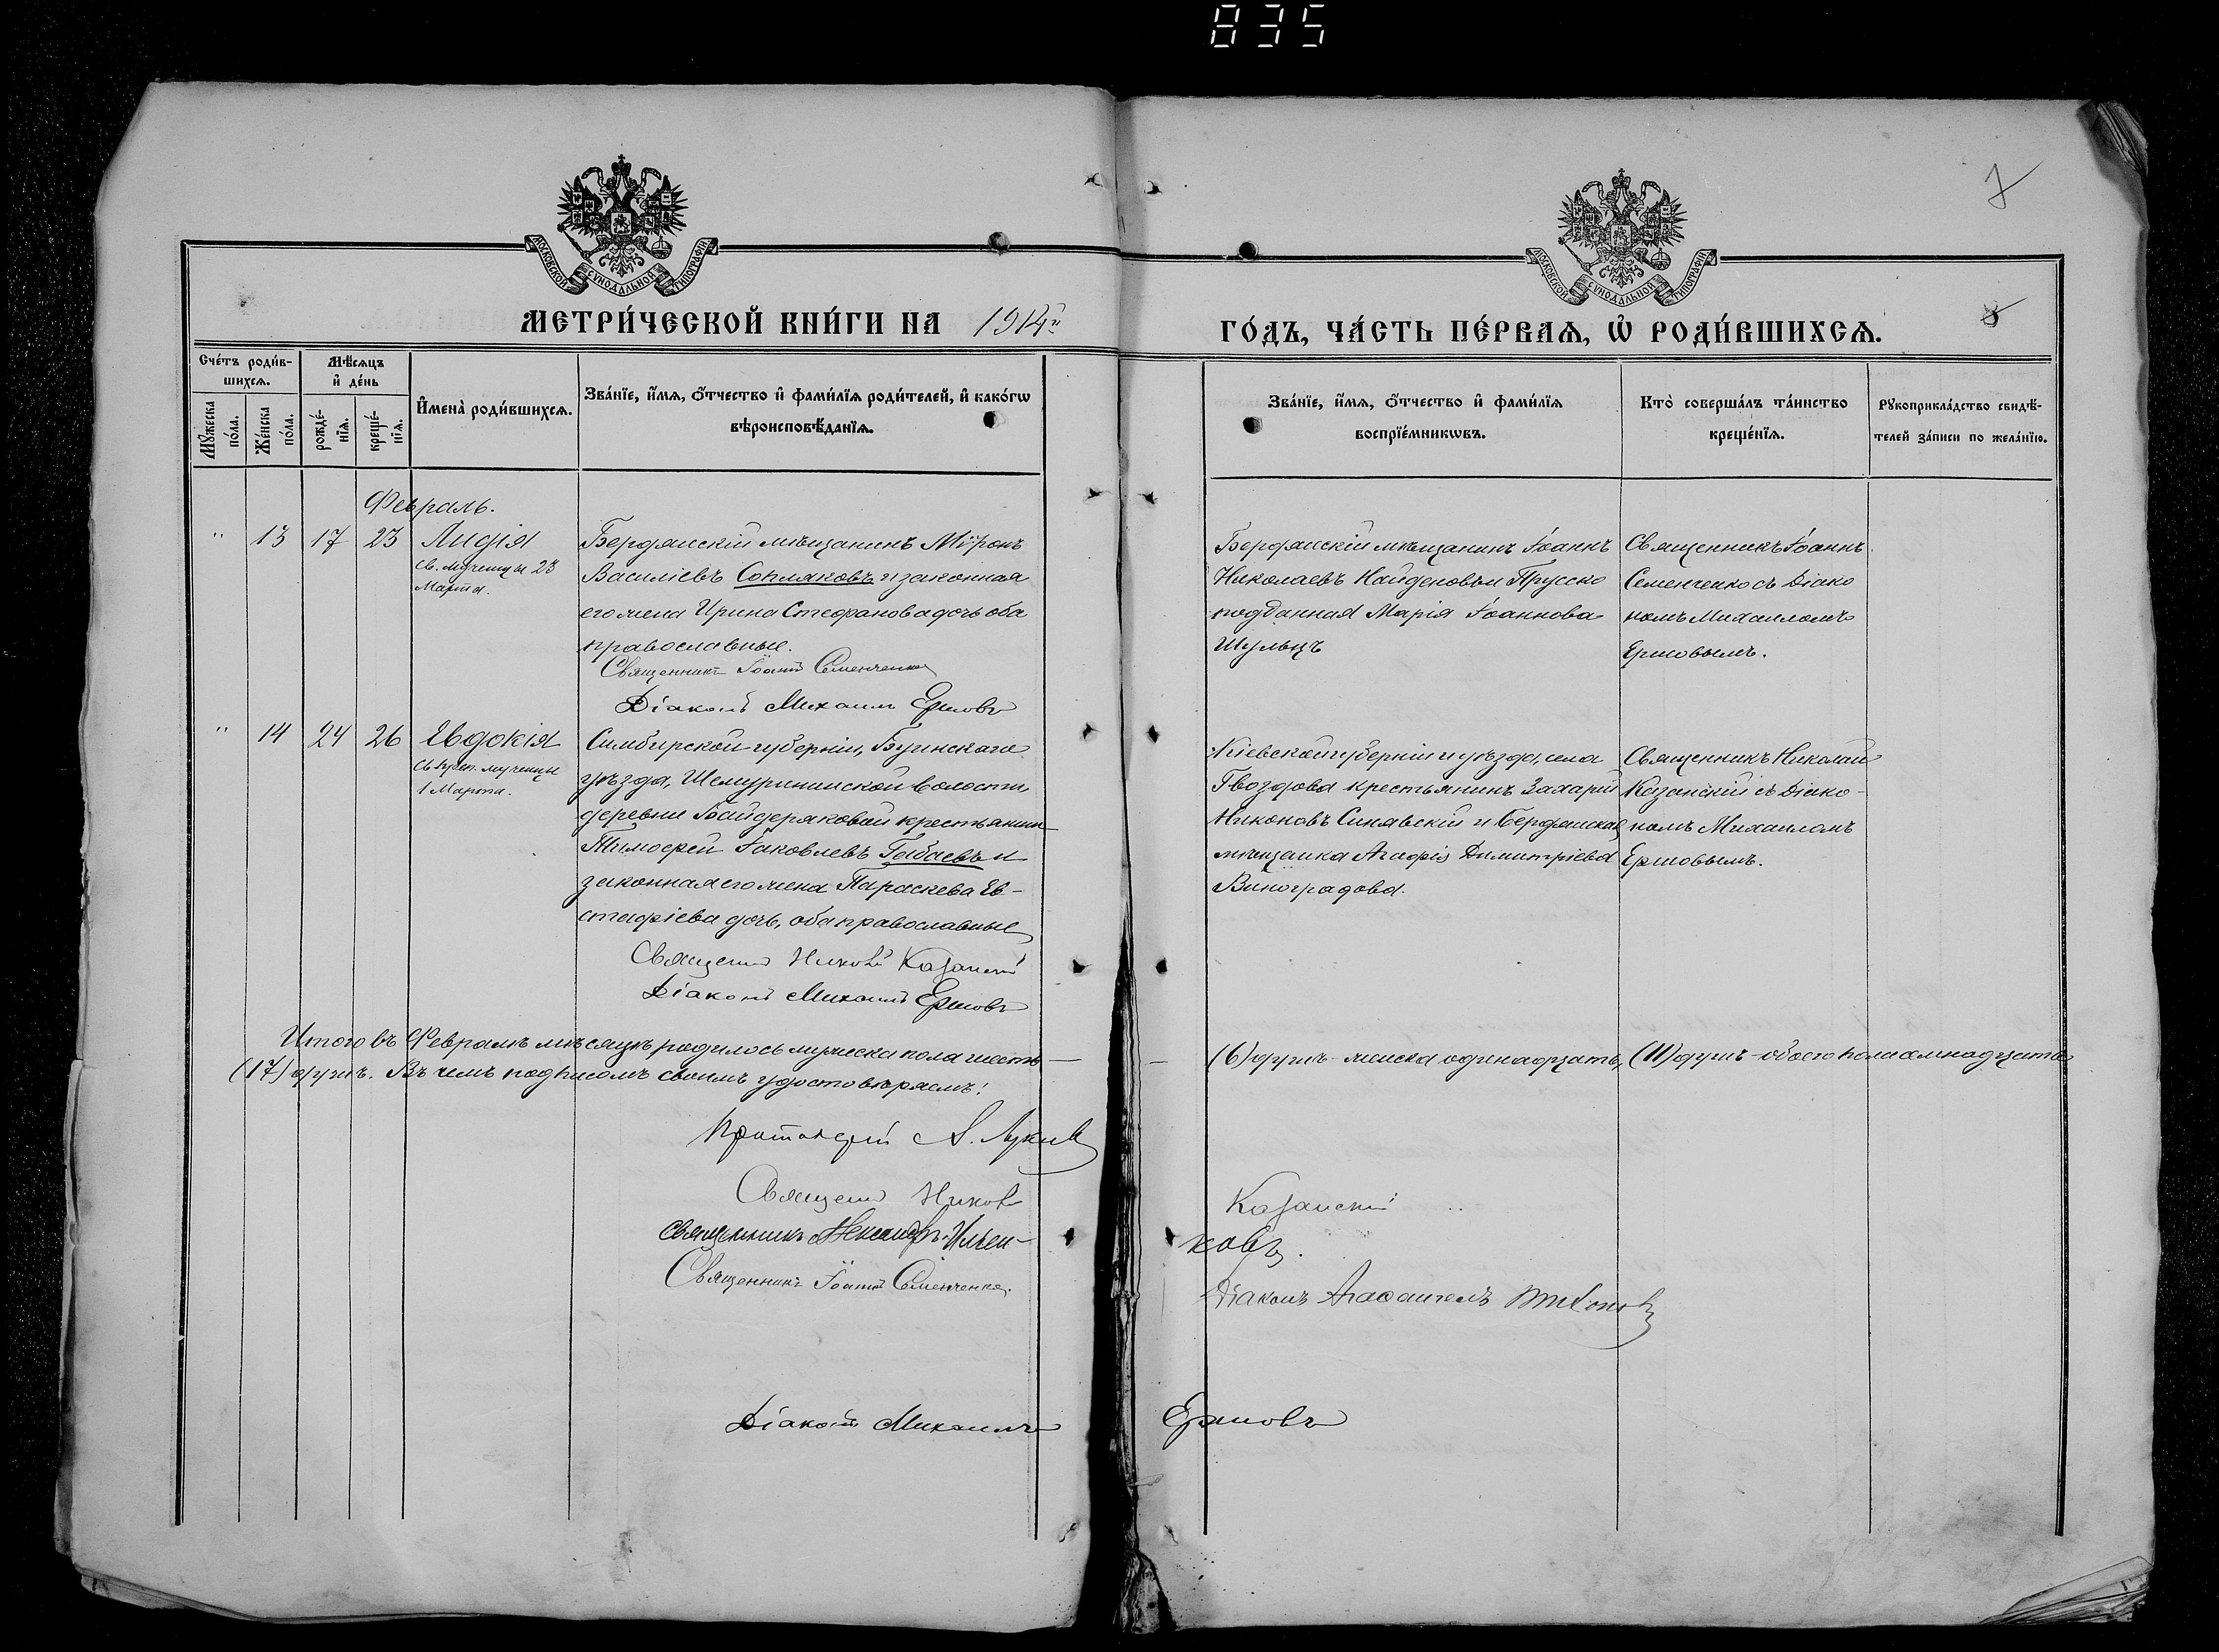 835
7
МОСКОВСКОЙ СѴНОДАЛЬНОЙ ТИПОГРАФІИ
МОСКОВСКОЙ СѴНОДАЛЬНОЙ ТИПОГРАФІИ
МЕТРИ́ЧЕСКОЙ КНИ́ГИ НА 1914й
ГО́ДЪ, ЧА́СТЬ ПЕ́РВАѦ, Ѡ҆ РОДИ́ВШИХСѦ.
Сче́тъ роди́в-
шихсѧ.
Мѣ́сѧцъ
и҆ де́нь
Мꙋ́жеска
по́ла.
Же́нска
по́ла.
рожде́-
нїѧ.
креще́-
нїѧ.
И҆мена̀ роди́вшихсѧ.
Зва́нїе, и҆́мѧ, ѻ҆́тчество и҆ фами́лїѧ роди́телей, и҆ како́гѡ
вѣроисповѣ́данїѧ.
Зва́нїе, и҆́мѧ, ѻ҆́тчество и҆ фами́лїѧ
воспрїе́мникѡвъ.
Кто̀ соверша́лъ та́инство
креще́нїѧ.
Рꙋкоприкла́дство свидѣ́-
телей за́писи по жела́нїю.
Февраль.
" 13 17 23 Лидія
св. мученицы 23
Марта.
Бердянскій мѣщанинъ Мѵронъ
Василіевъ Сопляковъ и законная
его жена Ирина Стефанова дочь оба
православные.
Священникъ Іоаннъ Семенченко
Діаконъ Михаилъ Ершовъ
Бердянскій мѣщанинъ Іоаннъ
Николаевъ Найденовъ и Прусско
подданная Марія Іоаннова
Шульцъ
Священникъ Іоаннъ
Семенченко съ Діако
номъ Михаиломъ
Ершовымъ.
" 14 24 26 Евдокія
св. преп. мученицы
1 Марта.
Симбирской губерніи, Буинскаго
уѣзда, Шемуршинской волости
деревни Байдеряковой крестьянин
Тимофей Іаковлевъ Габаевъ и
законная его жена Параскева Ев-
стафіева дочь, оба православные
Священник Николай Казанский
Діаконъ Михаилъ Ершовъ
Кіевской губерніи и уѣзда, села
Гвоздова крестьянинъ Захарий
Никоновъ Синявскій и Бердянская
мѣщанка Агафія Димитріева
Виноградова.
Священникъ Николай
Казанскій съ Діако-
номъ Михаиломъ
Ершовымъ.
Итого въ Февралѣ мѣсяцѣ родилось мужеска пола шесть — (6) душъ - женска одинадцать, (11) душъ - обоего пола семнадцать
(17) душъ. Въ чемъ подписомъ своимъ удостовѣряемъ:
Протоиерей А.
Священ Никол Казанский
Священникъ Александръ Ильен- ковъ.
Священникъ Іоаннъ Семенченко.
Діаконъ Агафангелъ
Діаконъ Михаилъ Ершовъ